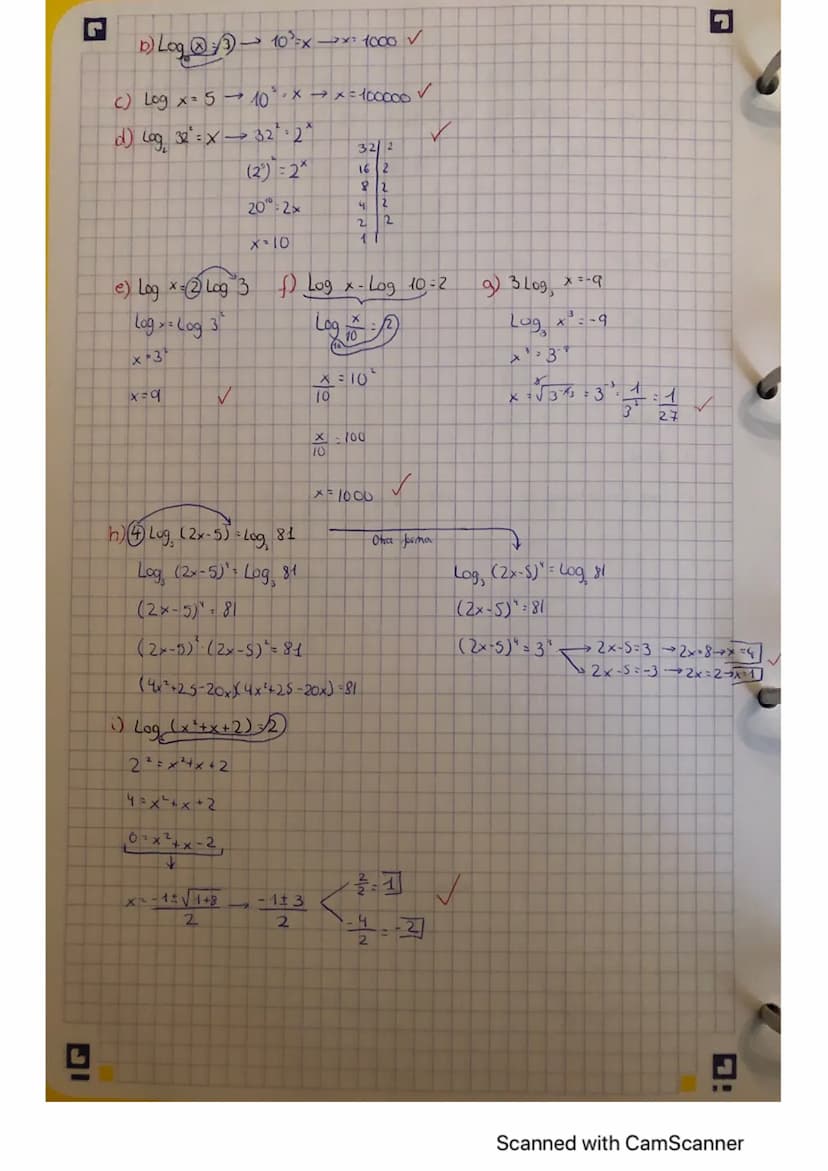 b) Log x = 3 → 10³ = x → x = 1000 ✓
c) Log x = 5 → 10⁵ = x → x = 100000 ✓
d) Log₂ 32² = x → 32² = 2ˣ ✓
(2⁵)² = 2ˣ
20¹⁰ = 2x
x = 10
32 | 2
16 | 2
8 | 2
4 | 2
2 | 2
1 |
e) Log x = 2 Log 3
Log x = Log 3²
x = 3²
x = 9 ✓
f) Log x - Log 10 = 2
Log x/10 = 2
10
x/10 = 10²
x/10 = 100
x = 1000 ✓
g) 3 Log₃ x = -9
Log₃ x³ = -9
x³ = 3⁻⁹
= 3⁻³ = 1/3³ = 1/27 ✓
h) 4 Log₃ (2x-5) = Log₃ 81
Log₃ (2x-5)⁴ = Log₃ 81
(2x-5)⁴ = 81
(2x-5)² · (2x-5)² = 81
(4x²+25-20x)(4x²+25-20x) = 81
Otra forma
Log₃ (2x-5)⁴ = Log₃ 81
(2x-5)⁴ = 81
(2x-5)⁴ = 3⁴ → 2x-5 = 3 → 2x = 8 → x = 4 ✓
→ 2x-5 = -3 → 2x = 2 → x = 1
i) Log₂ (x²+x+2) = 2
2² = x²+x+2
4 = x²+x+2
0 = x²+x-2
↓
x = (-1±√1+8)/2 → (-1±3)/2
2/2 = 1 ✓
-4/2 = -2
Scanned with CamScanner